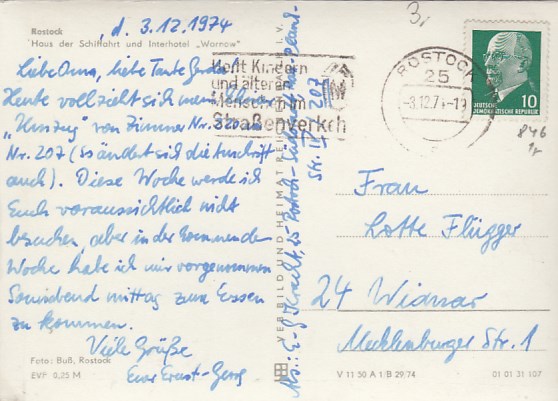 Rostock
"Haus der Schiffahrt und Interhotel „Warnow"
, d. 3.12.1974
Liebe Oma, liebe Tante Grete
Heute vollzieht sich mein
„Umzug" von Zimmer Nr. 320 in
Nr. 207 (so ändert sich die Anschrift
auch). Diese Woche werde ich
Euch voraussichtlich nicht
besuchen, aber in der kommenden
Woche habe ich mir vorgenommen
Sonnabend mittag zum Essen
zu kommen.
Viele Grüße
Euer Ernst-Georg
Foto: Buß, Rostock
EVP 0,25 M
VEB BILD UND HEIMAT REICHENBACH I. V.
Abs.: E.-G. 25 Rostock-
Str. II 207
Helft Kindern
und älteren
Menschen im
Straßenverkehr
ROSTOCK
25
-3.12.7
10
DEUTSCHE
DEMOKRATISCHE REPUBLIK
3,
846
Frau
Lotte Flügger
24 Wismar
Mecklenburger Str. 1
V 11 50 A 1/B 29/74
01 01 31 107